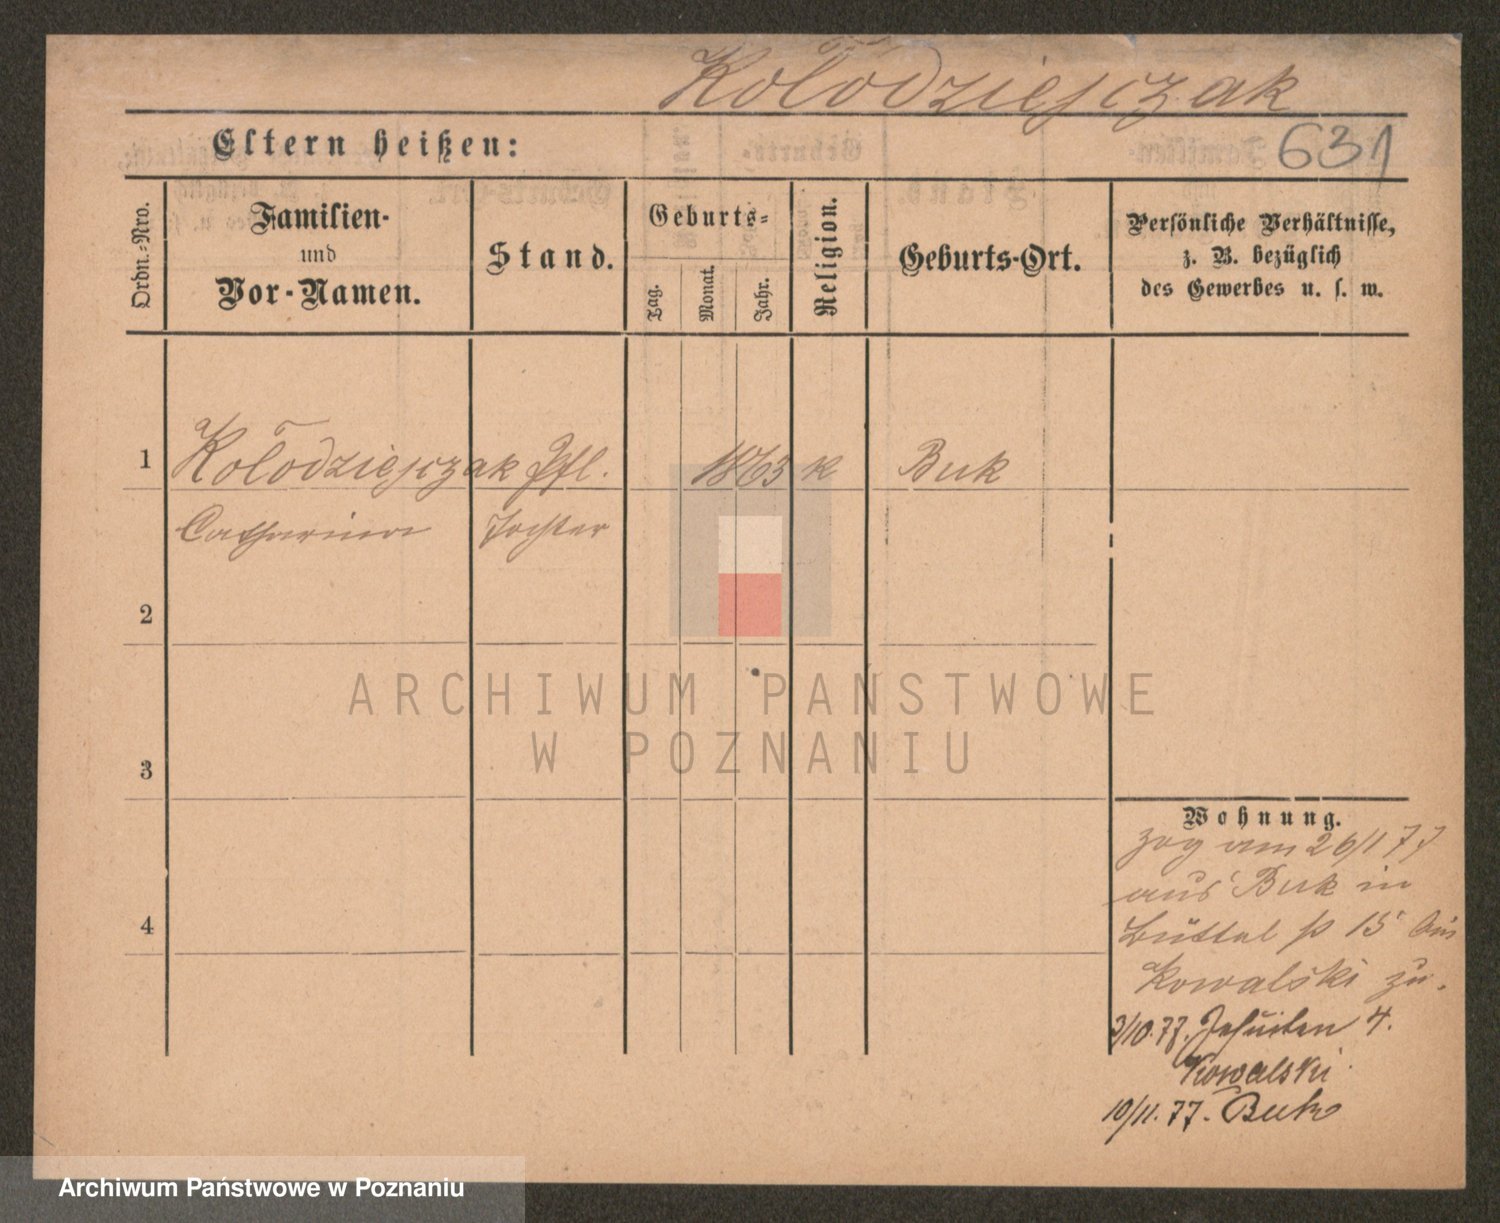 Kołodziejczak
Eltern heißen:
631
Ordn.-Nro.
Familien-
und
Vor-Namen.
Stand.
Geburts-
Tag.
Monat.
Jahr.
Religion.
Geburts-Ort.
Persönliche Verhältnisse,
z. B. bezüglich
des Gewerbes u. s. w.
1 Kołodziejczak Pfl. 1863 k Buk
Catharina Tochter
2
3
4
ARCHIWUM PAŃSTWOWE
W POZNANIU
Wohnung.
zog am 26/1 77
aus Buk in
Büttel 15
Kowalski zu.
2/10.77. Jesuiten 4.
Kowalski
10/11.77. Buk
Archiwum Państwowe w Poznaniu